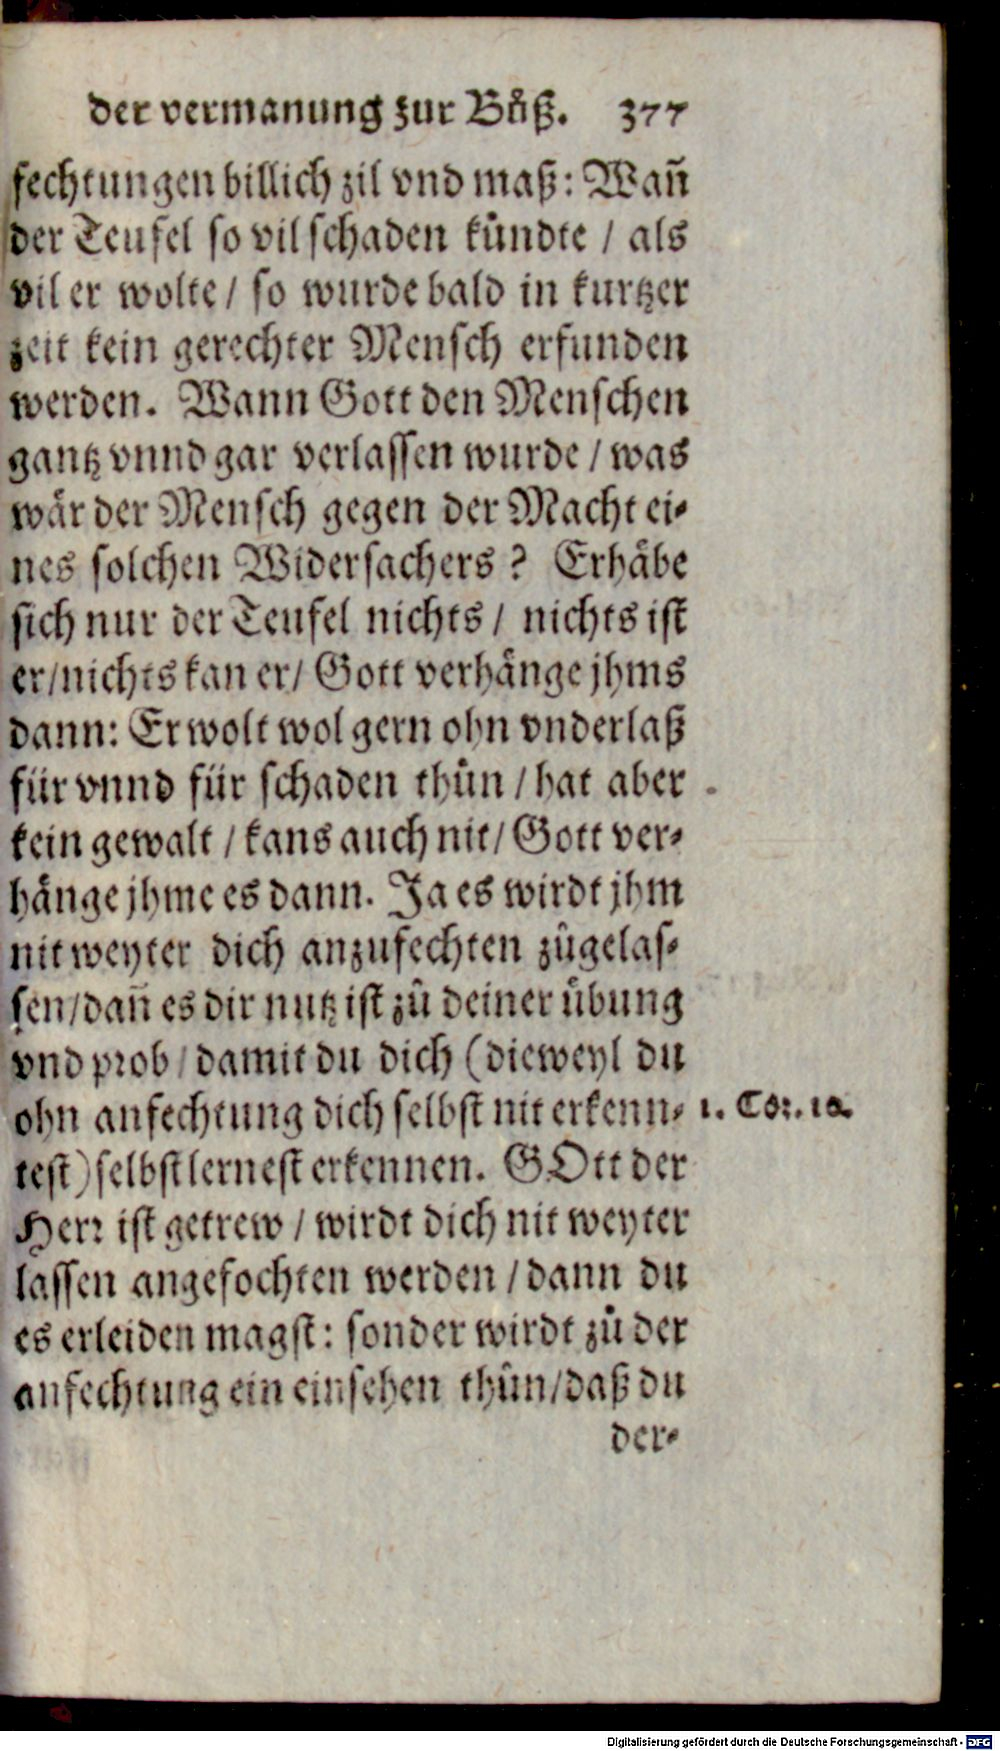 der vermanung zur Bůß. 377
fechtungen billich zil vnd maß: Wañ
der Teufel so vil schaden kündte / als
vil er wolte / so wurde bald in kurtzer
zeit kein gerechter Mensch erfunden
werden. Wann Gott den Menschen
gantz vnnd gar verlassen wurde / was
wär der Mensch gegen der Macht ei-
nes solchen Widersachers? Erhäbe
sich nur der Teufel nichts / nichts ist
er/nichts kan er/ Gott verhänge jhms
dann: Er wolt wol gern ohn vnderlaß
für vnnd für schaden thůn / hat aber
kein gewalt / kans auch nit/ Gott ver-
hänge jhme es dann. Ja es wirdt jhm
nit weyter dich anzufechten zůgelas-
sen/dañ es dir nutz ist zů deiner übung
vnd prob / damit du dich (dieweyl du
ohn anfechtung dich selbst nit erkenn- 1. Cor. 10.
test) selbst lernest erkennen. GOtt der
Herr ist getrew / wirdt dich nit weyter
lassen angefochten werden / dann du
es erleiden magst: sonder wirdt zů der
anfechtung ein einsehen thůn/daß du
der-
Digitalisierung gefördert durch die Deutsche Forschungsgemeinschaft - DFG